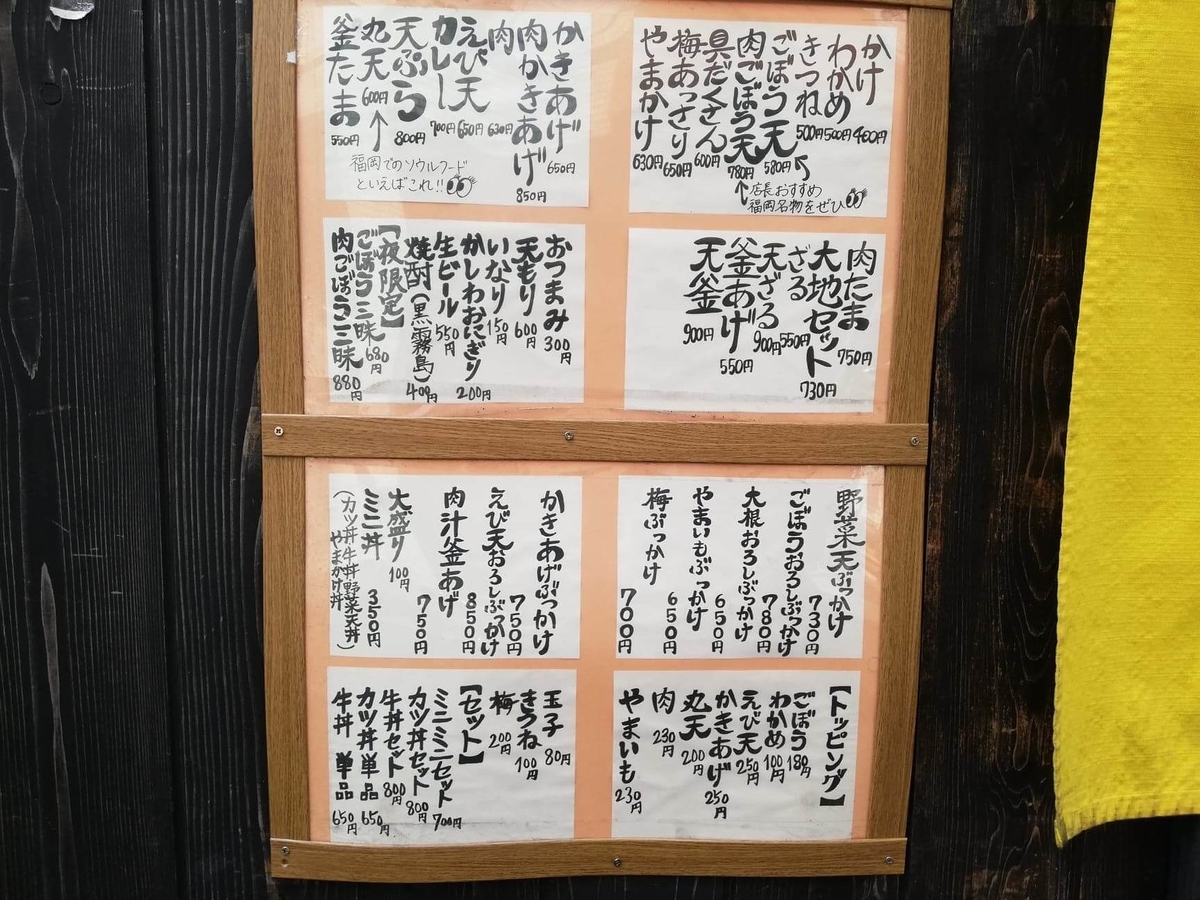 かけ 400円
わかめ 500円
きつね 500円
ごぼう天 580円
肉ごぼう天 780円
店長おすすめ
福岡名物をぜひ
具だくさん 600円
梅あっさり 650円
やまかけ 630円
かきあげ 650円
肉かきあげ 850円
肉 630円
えび天 650円
カレー 700円
天ぷら 800円
丸天 600円
福岡でのソウルフード
といえばこれ!!
釜たま 550円
肉たま 750円
大地セット 730円
ざる 550円
天ざる 900円
釜あげ 550円
天釜 900円
おつまみ 300円
天もり 600円
いなり 150円
かしわおにぎり 200円
生ビール 550円
焼酎(黒霧島) 400円
【夜限定】
ごぼう三昧 680円
肉ごぼう三昧 880円
野菜天ぶっかけ 730円
ごぼうおろしぶっかけ 780円
大根おろしぶっかけ 650円
やまいもぶっかけ 650円
梅ぶっかけ 700円
かきあげぶっかけ 750円
えび天おろしぶっかけ 850円
肉汁釜あげ 750円
大盛り 100円
ミニ丼 350円
(カツ丼牛丼野菜天丼
やまかけ丼)
【トッピング】
ごぼう 180円
わかめ 100円
えび天 250円
かきあげ 250円
丸天 200円
肉 230円
やまいも 230円
玉子 80円
きつね 100円
梅 200円
【セット】
ミニミニセット 700円
カツ丼セット 800円
牛丼セット 800円
カツ丼単品 650円
牛丼 単品 650円